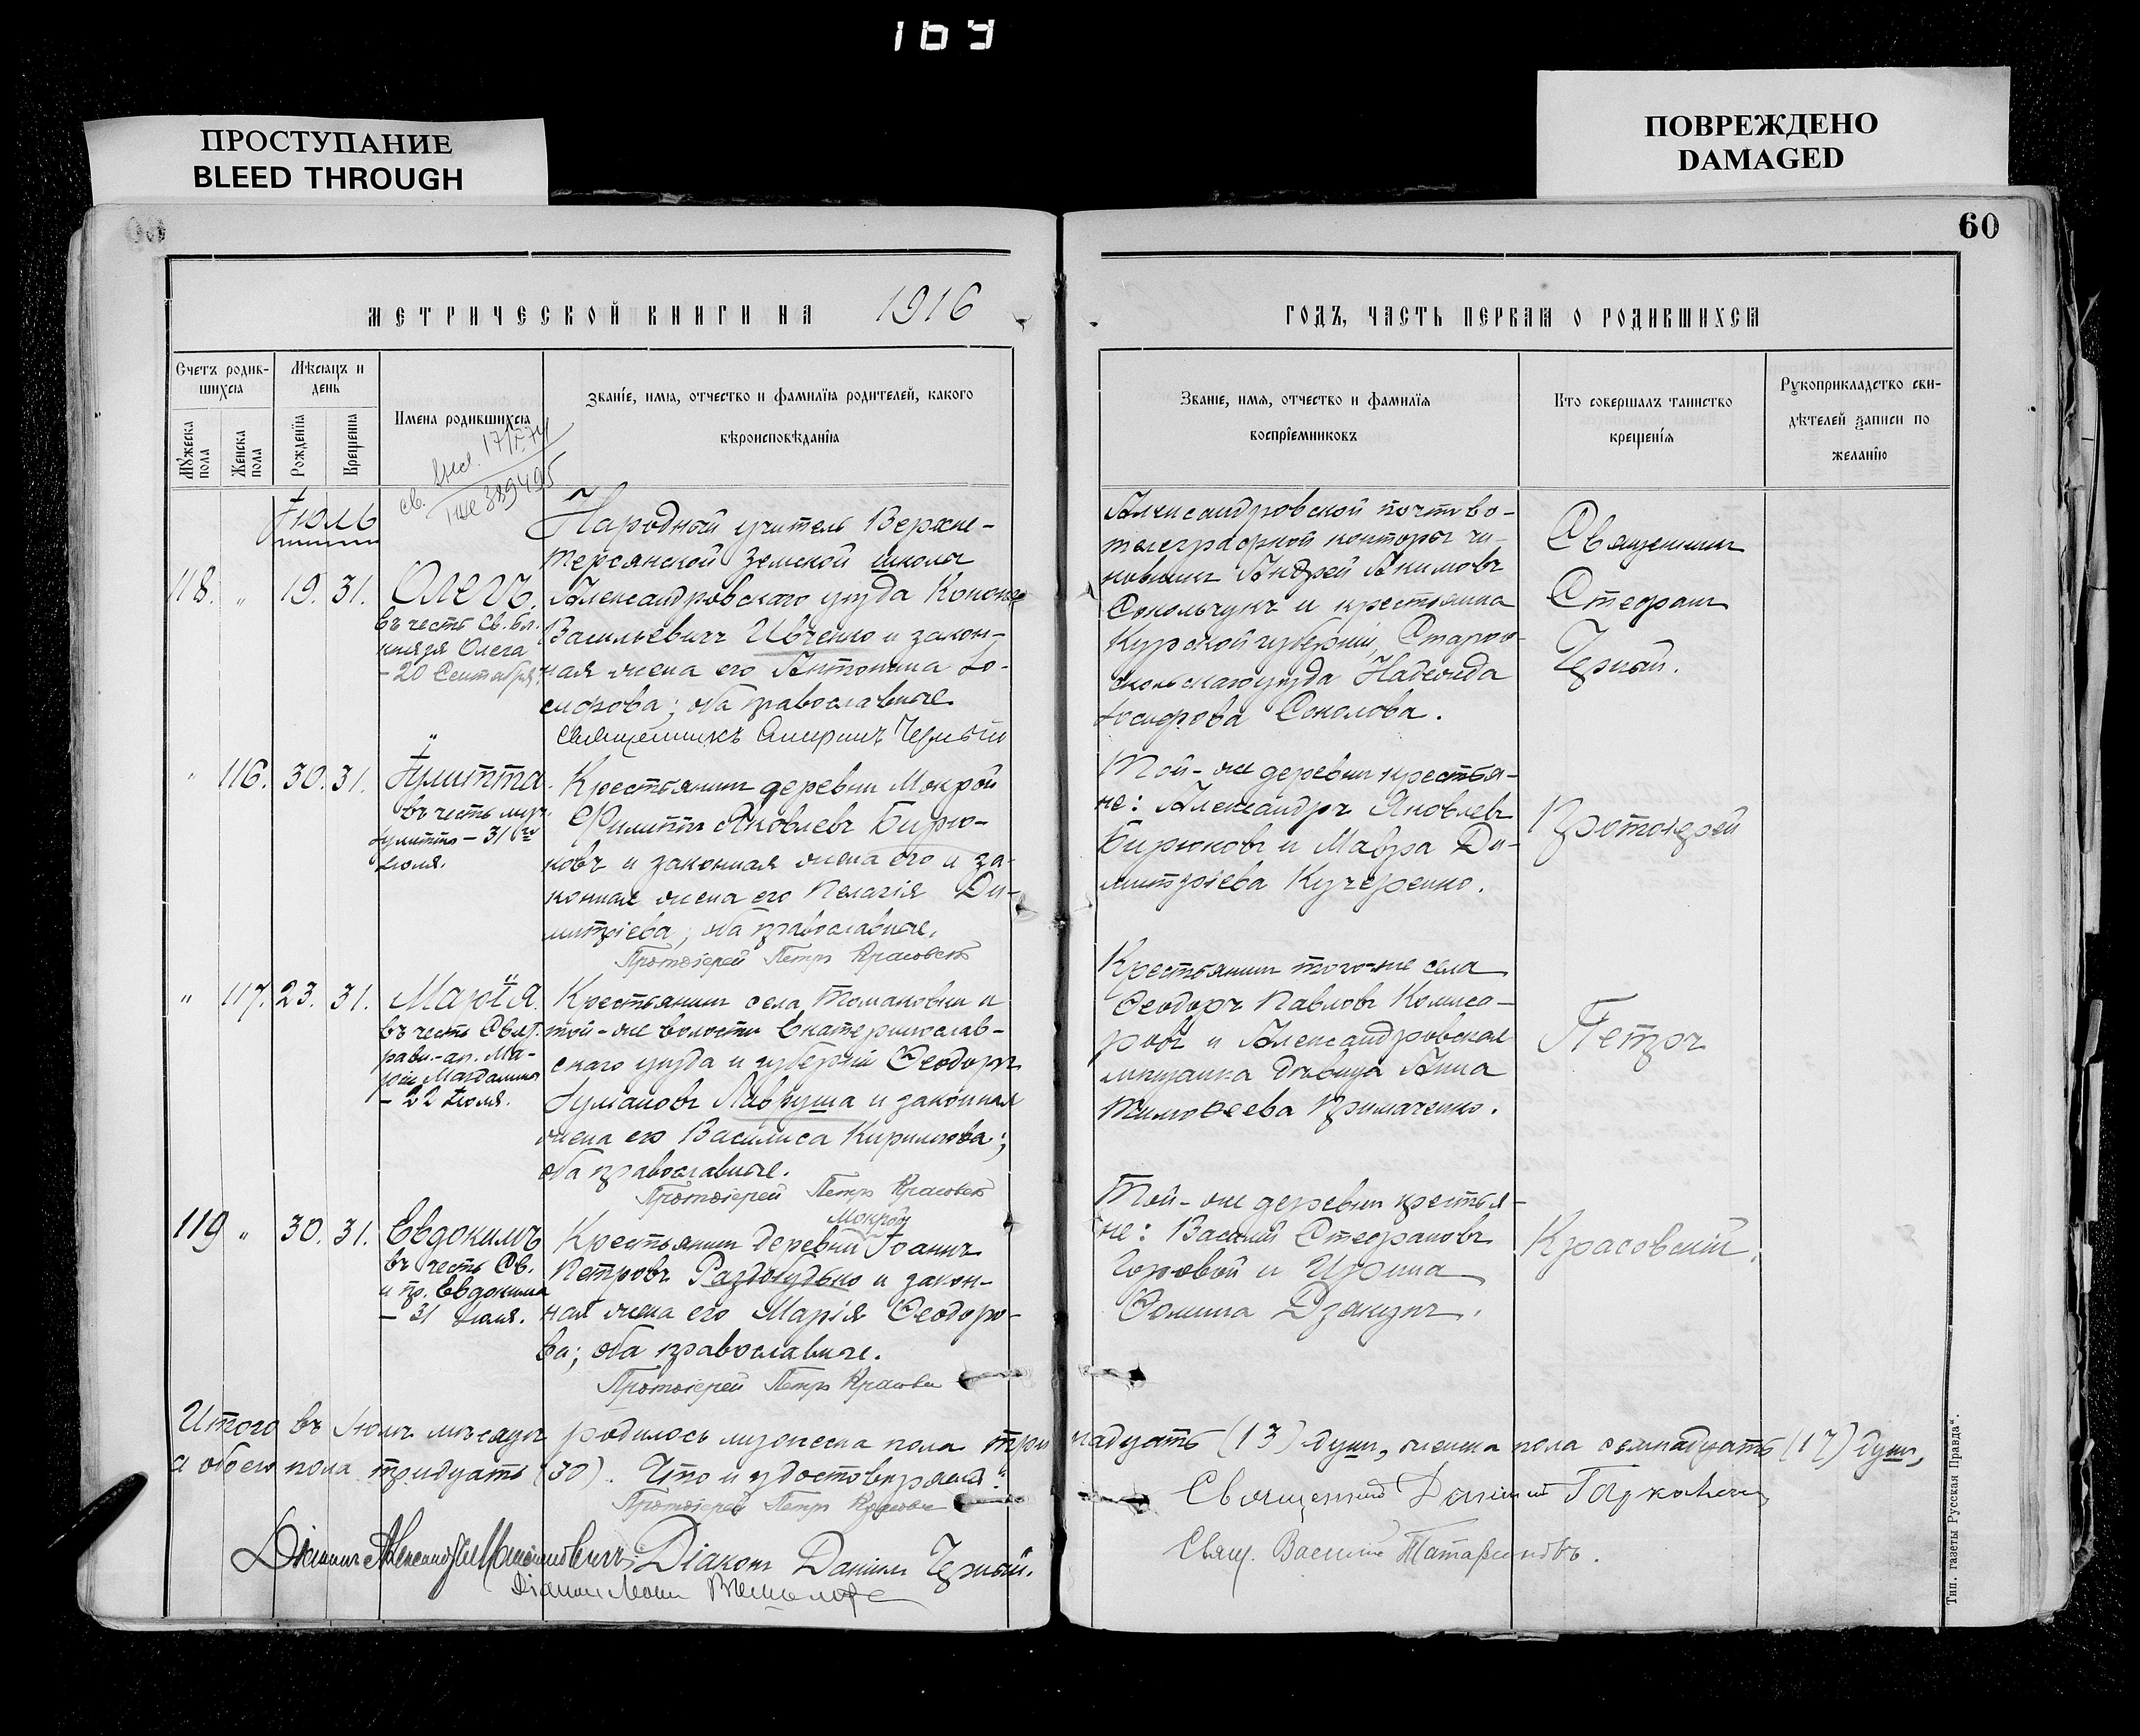 169
ПРОСТУПАНИЕ
BLEED THROUGH
ПОВРЕЖДЕНО
DAMAGED
60
МЕТРИЧЕСКОЙ КНИГИ НА 1916
ГОДЪ, ЧАСТЬ ПЕРВАЯ О РОДИВШИХСЯ
Счетъ родив-
шихся
Мужеска пола
Женска пола
Мѣсяцъ и
день
Рожденія
Крещенія
Имена родившихся
Званіе, имя, отчество и фамилія родителей, какого
вѣроисповѣданія
Званіе, имя, отчество и фамилія
воспріемниковъ
Кто совершалъ таинство
крещенія
Рукоприкладство сви-
дѣтелей записи по
желанію
Іюль
118. " 19. 31. Олегъ.
Въ честь Св. бл.
князя Олега
- 20 Сентября.
Народный учитель Верхне-
терсянской земской школы
Александровскаго уѣзда Конон
Васильевичъ Ивченко и закон-
ная жена его Антонина Іо-
сифова; оба православные.
Священникъ Стефанъ Черный
Александровской почтово-
телеграфной конторы чи-
новникъ Андрей Акимовъ
Сокольчукъ и крестьянка
Курской губерніи, Старо-
оскольскаго уѣзда Надежда
Іосифова Соколова.
Священникъ
Стефанъ
Черный.
" 116. 30. 31. Іулитта.
въ честь муч.
Іулитты - 31го
Іюля.
Крестьянинъ деревни Мокрой
Филиппъ Яковлевъ Бирю-
ковъ и законная жена его и за-
конная жена его Пелагія Ди-
митріева; оба православные.
Протоіерей Петръ Красовскій
Той-же деревни крестья-
не: Александръ Яковлевъ
Бирюковъ и Мавра Ди-
митріева Кучеренко.
Протоіерей
" 117. 23. 31. Марія.
въ честь Свят.
равн.-ап. Ма-
ріи Магдалины
- 22 Іюля.
Крестьянинъ села Томаковки и
той-же волости Екатеринослав-
скаго уѣзда и губерніи Ѳеодоръ
Лавруша и законная
жена его Василиса Кириллова;
оба православные.
Протоіерей Петръ Красовскій
Крестьянинъ того-же села
Ѳеодоръ Павловъ Комиса-
ровъ и Александровская
мѣщанка дѣвица Анна
Тимоѳеева Примаченко.
Петръ
119 " 30. 31. Евдокимъ
въ честь Св.
и пр. Евдокима
- 31 Іюля.
Мокрой
Крестьянинъ деревни Іоаннъ
Петровъ Раздобудько и закон-
ная жена его Марія Ѳеодоро-
ва; оба православные.
Протоіерей Петръ Красовскій
Той-же деревни крестья-
не: Василій Стефановъ
Горовой и Ирина
Ѳомина Дзякунъ.
Красовскій.
Итого въ Іюлѣ мѣсяцѣ родилось мужеска пола тринадцать (13) душъ, женска пола семнадцать (17) душъ,
а обоего пола тридцать (30). Что и удостовѣряемъ:
Протоіерей Петръ Красовскій
Священникъ
Діаконъ Даніилъ Черный.
Свящ. Василій
Тип. газеты Русская Правда".